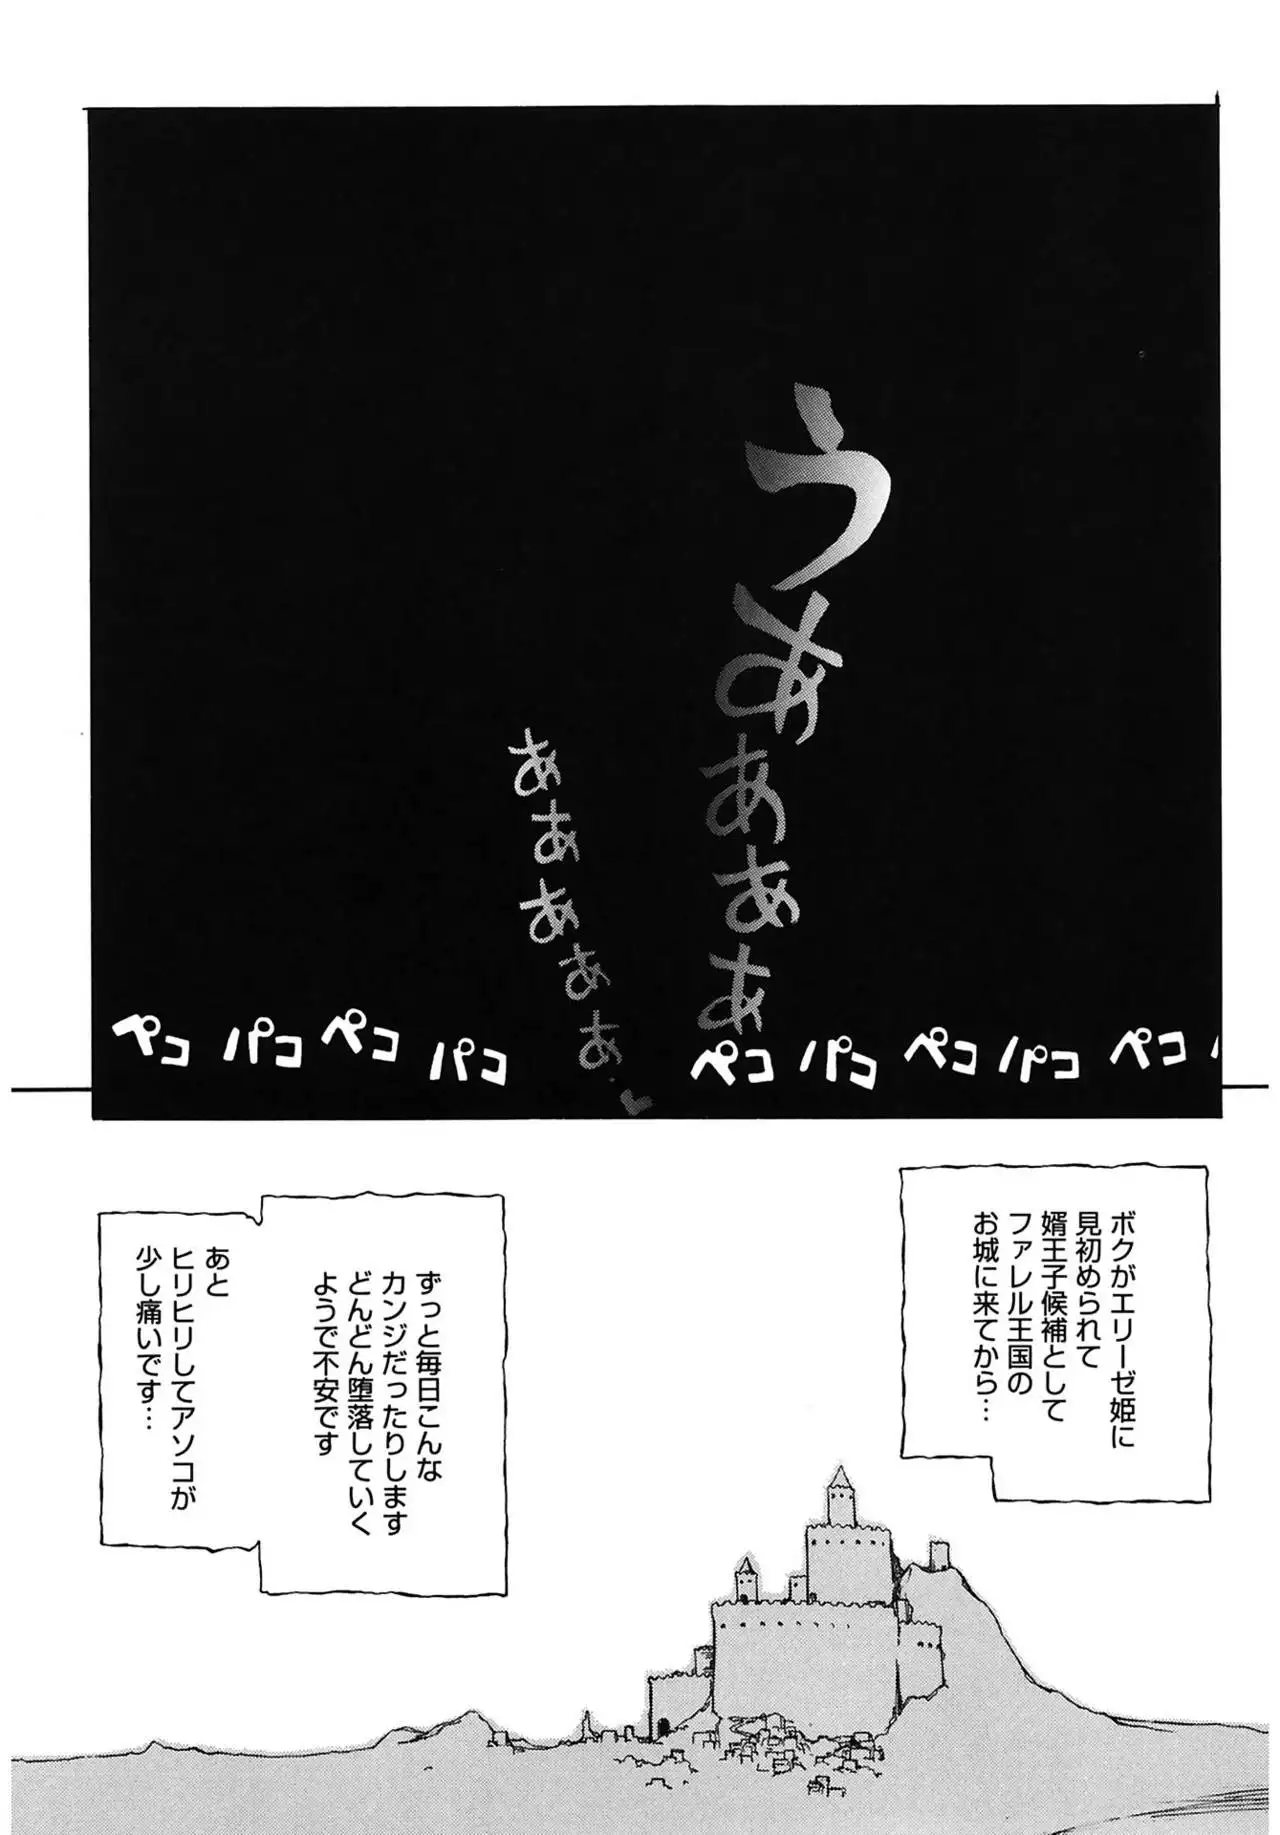 うあああああ
あああああ♥
ペコ パコ ペコ パコ ペコ パコ ペコ パコ ペコ
ボクがエリーゼ姫に
見初められて
婿王子候補として
ファレル王国の
お城に来てから…
ずっと毎日こんな
カンジだったりします
どんどん堕落していく
ようで不安です
あと
ヒリヒリしてアソコが
少し痛いです…